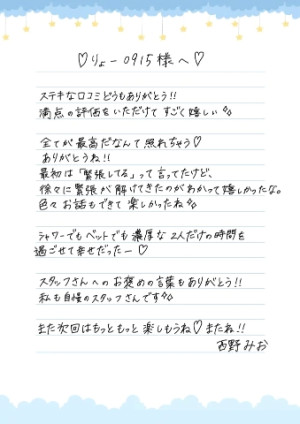 ♡りょー0915様へ♡
ステキな口コミどうもありがとう!!
満点の評価をいただけて すごく嬉しい♪
全てが最高だなんて照れちゃう♡
ありがとうね!!
最初は「緊張してる」って言ってたけど、
徐々に緊張が解けてきたのがわかって嬉しかったな。
色々お話もできて楽しかったね♪
シャワーでもベットでも濃厚な2人だけの時間を
過ごせて幸せだったー♡
スタッフさんへのお褒めの言葉もありがとう!!
私も自慢のスタッフさんです♪
また次回はもっともっと楽しもうね♡またね!!
西野みお